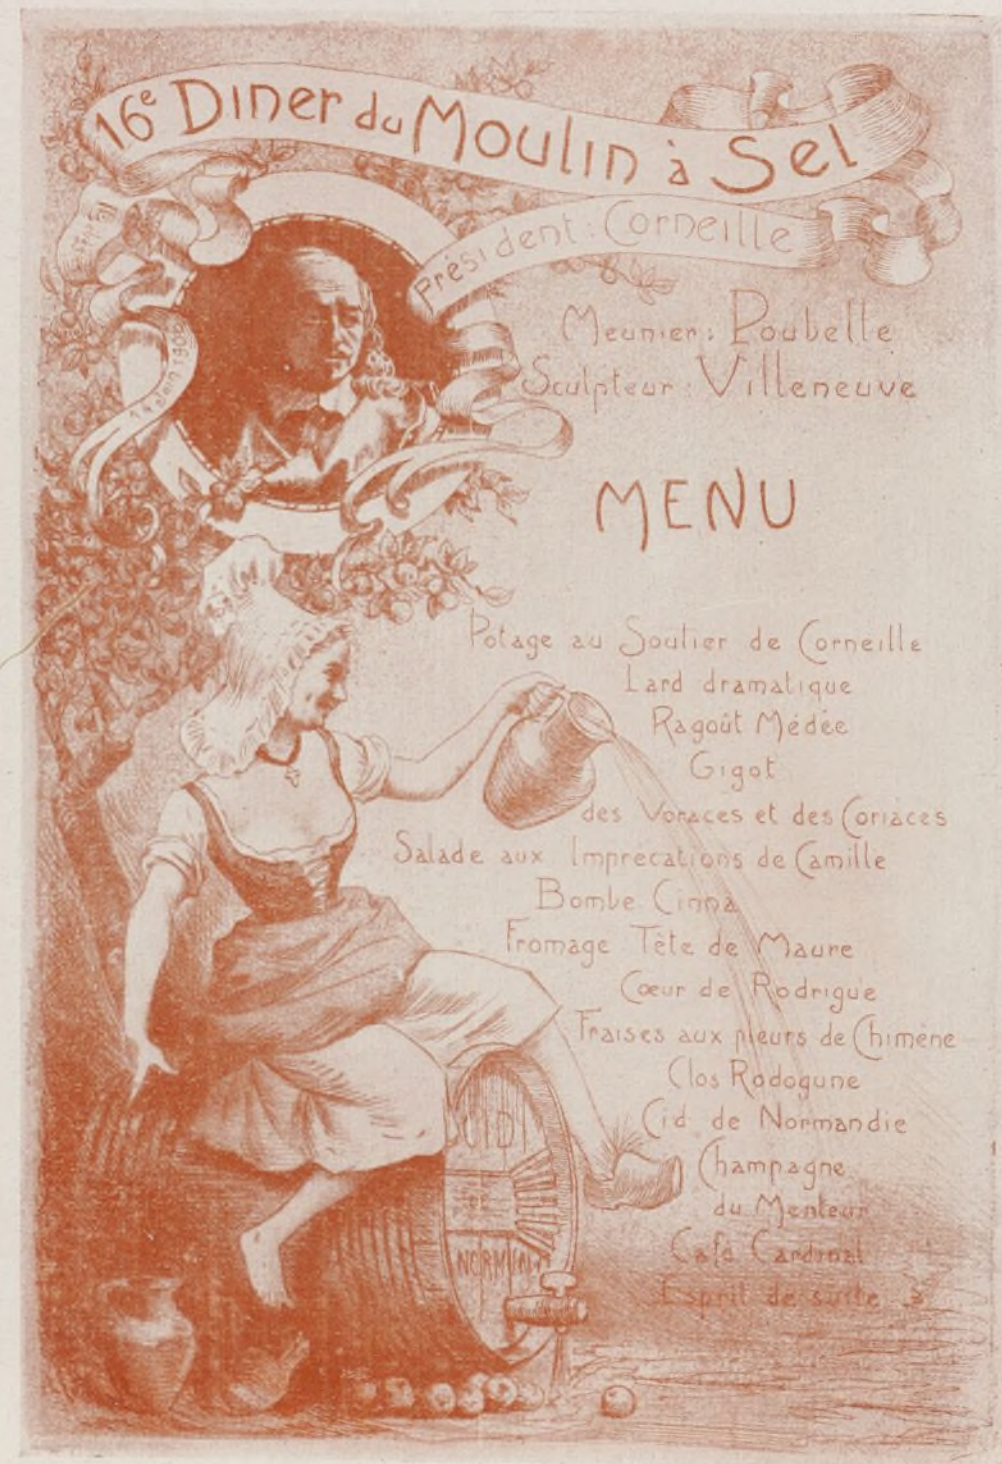 16e Diner du Moulin à Sel
Président : Corneille
14 Juin 190
Meunier : Poubelle
Sculpteur : Villeneuve
MENU
Potage au Soulier de Corneille
Lard dramatique
Ragoût Médée
Gigot
des Voraces et des Coriaces
Salade aux Imprécations de Camille
Bombe Cinna
Fromage Tête de Maure
Cœur de Rodrigue
Fraises aux pleurs de Chimène
Clos Rodogune
Cid de Normandie
Champagne
du Menteur
Café Cardinal
Esprit de suite
CID
DE
NORMAN